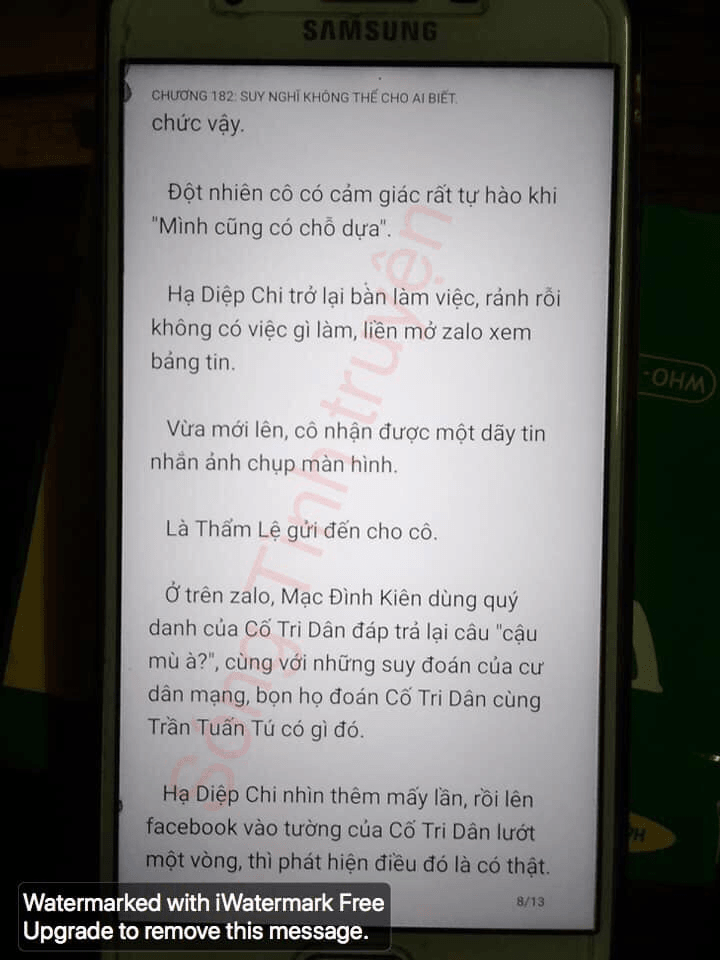 SAMSUNG
CHƯƠNG 182: SUY NGHĨ KHÔNG THỂ CHO AI BIẾT.
chức vậy.
Đột nhiên cô có cảm giác rất tự hào khi
"Mình cũng có chỗ dựa".
Hạ Diệp Chi trở lại bàn làm việc, rảnh rỗi
không có việc gì làm, liền mở zalo xem
bảng tin.
Vừa mới lên, cô nhận được một dãy tin
nhắn ảnh chụp màn hình.
Là Thẩm Lệ gửi đến cho cô.
Ở trên zalo, Mạc Đình Kiên dùng quý
danh của Cố Tri Dân đáp trả lại câu "cậu
mù à?", cùng với những suy đoán của cư
dân mạng, bọn họ đoán Cố Tri Dân cùng
Trần Tuấn Tú có gì đó.
Hạ Diệp Chi nhìn thêm mấy lần, rồi lên
facebook vào tường của Cố Tri Dân lướt
một vòng, thì phát hiện điều đó là có thật.
8/13
Sủng Tình truyện
OHM-
Watermarked with iWatermark Free
Upgrade to remove this message.